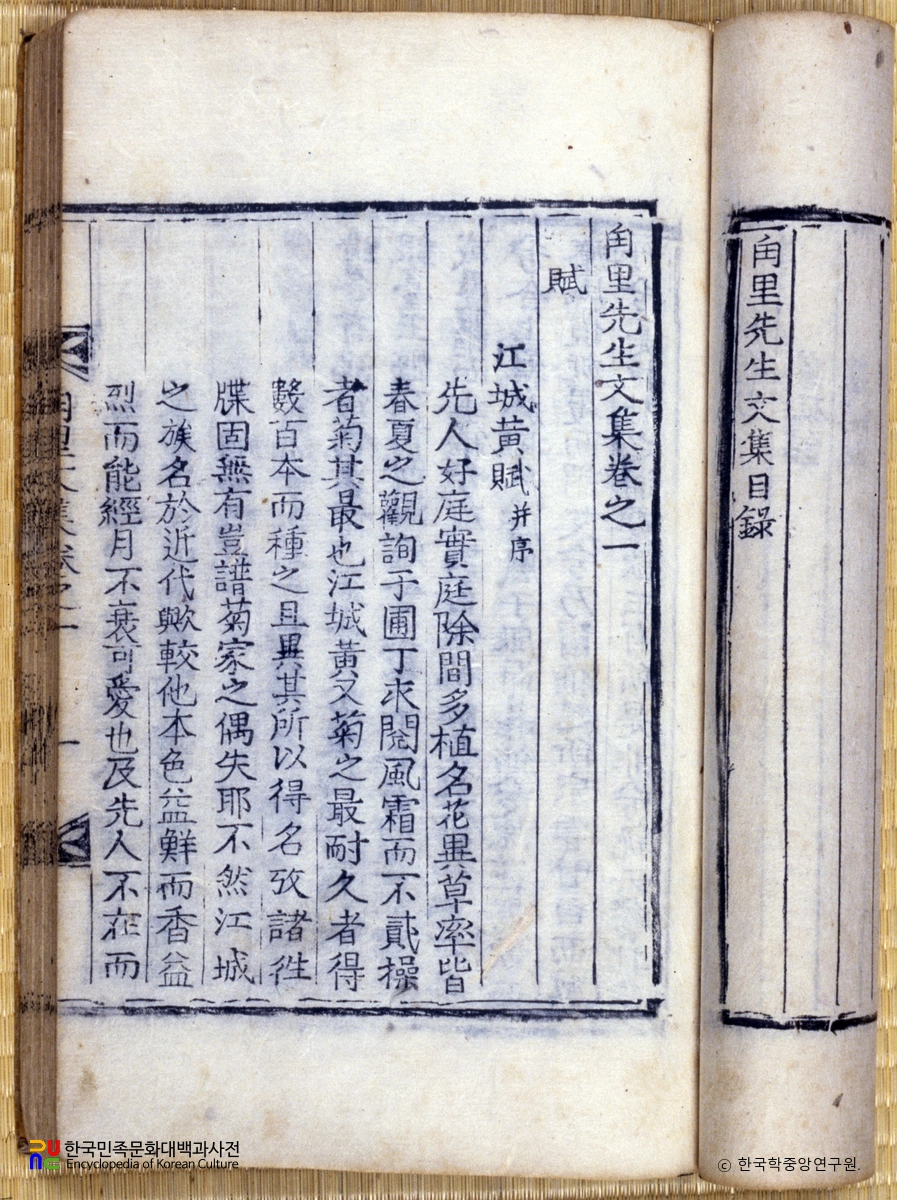 甪里先生文集目錄
甪里先生文集卷之一
賦
江城黃賦 并序
先人好庭實庭除間多植名花異草率皆
春夏之觀詢于圃丁求閱風霜而不貳操
者菊其最也江城黃又菊之最耐久者得
數百本而種之且異其所以得名攷諸往
牒固無有豈譜菊家之偶失耶不然江城
之族名於近代歟較他本色益鮮而香益
烈而能經月不衰可愛也及先人不在而
里文集卷之一 一
한국민족문화대백과사전
Encyclopedia of Korean Culture
© 한국학중앙연구원.